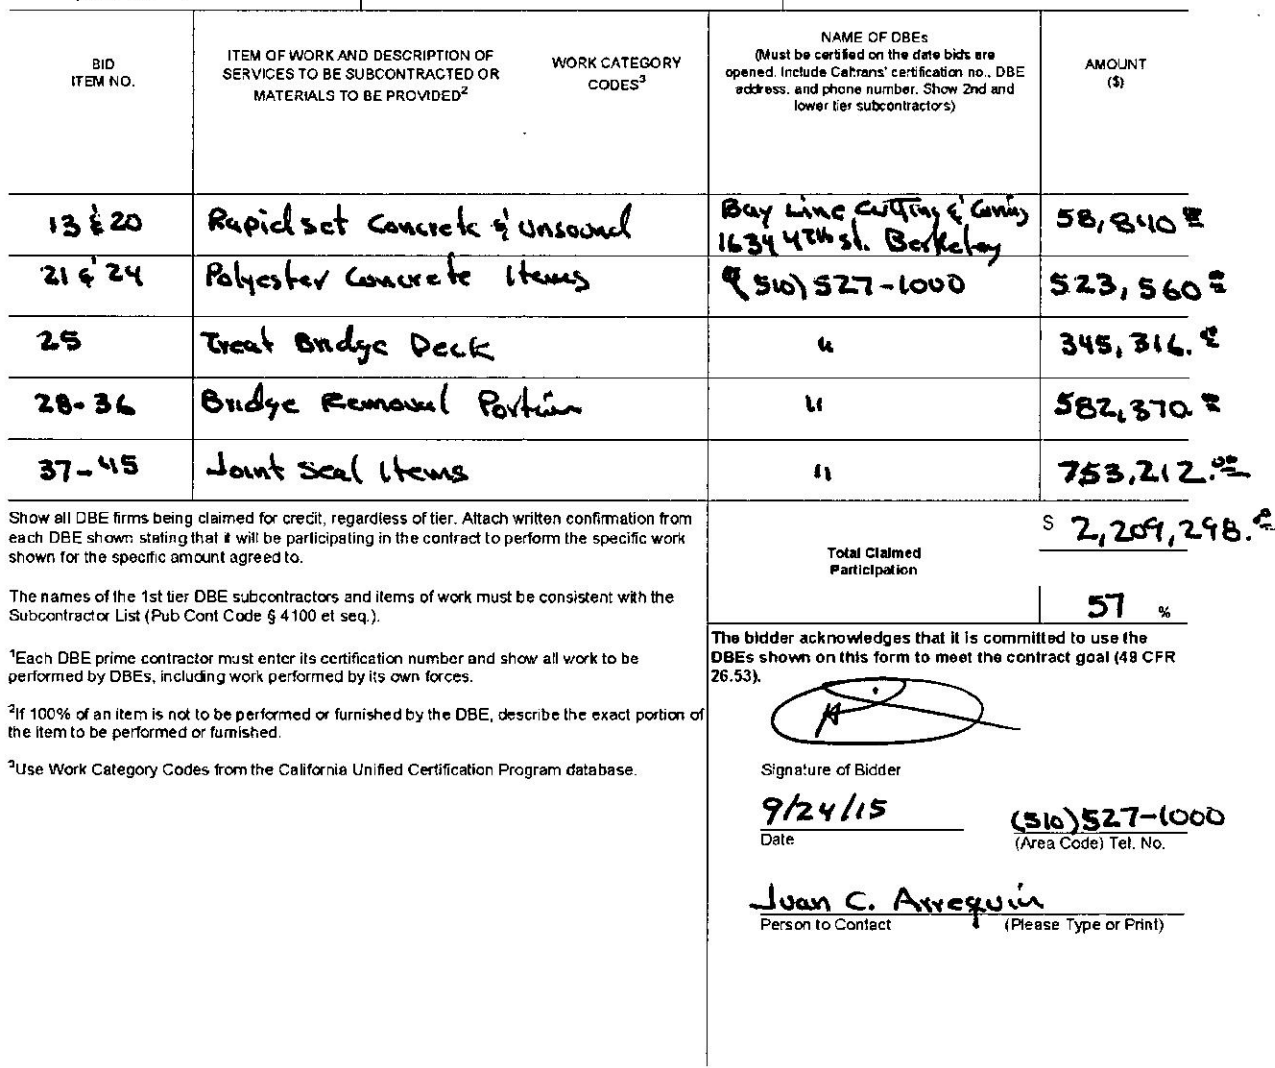 BID
ITEM NO.
ITEM OF WORK AND DESCRIPTION OF
SERVICES TO BE SUBCONTRACTED OR
MATERIALS TO BE PROVIDED²
WORK CATEGORY
CODES³
NAME OF DBEs
(Must be certified on the date bids are
opened. Include Caltrans' certification no., DBE
address, and phone number. Show 2nd and
lower tier subcontractors)
AMOUNT
($)
13 & 20 Rapid set Concrete & Unsound Bay Line Cutting & Coring 58,840.00
1634 4th st. Berkeley
21 & 24 Polyester Concrete Items (510) 527-1000 523,560.00
25 Treat Bridge Deck " 345,316.00
28-36 Bridge Removal Portion " 582,370.00
37-45 Joint Seal Items " 753,212.00
Show all DBE firms being claimed for credit, regardless of tier. Attach written confirmation from
each DBE shown stating that it will be participating in the contract to perform the specific work
shown for the specific amount agreed to.
The names of the 1st tier DBE subcontractors and items of work must be consistent with the
Subcontractor List (Pub Cont Code § 4100 et seq.).
¹Each DBE prime contractor must enter its certification number and show all work to be
performed by DBEs, including work performed by its own forces.
²If 100% of an item is not to be performed or furnished by the DBE, describe the exact portion of
the item to be performed or furnished.
³Use Work Category Codes from the California Unified Certification Program database.
Total Claimed
Participation
$ 2,209,298.00
57 %
The bidder acknowledges that it is committed to use the
DBEs shown on this form to meet the contract goal (49 CFR
26.53).
Signature of Bidder
9/24/15 (510) 527-1000
Date (Area Code) Tel. No.
Juan C. Arreguin
Person to Contact (Please Type or Print)